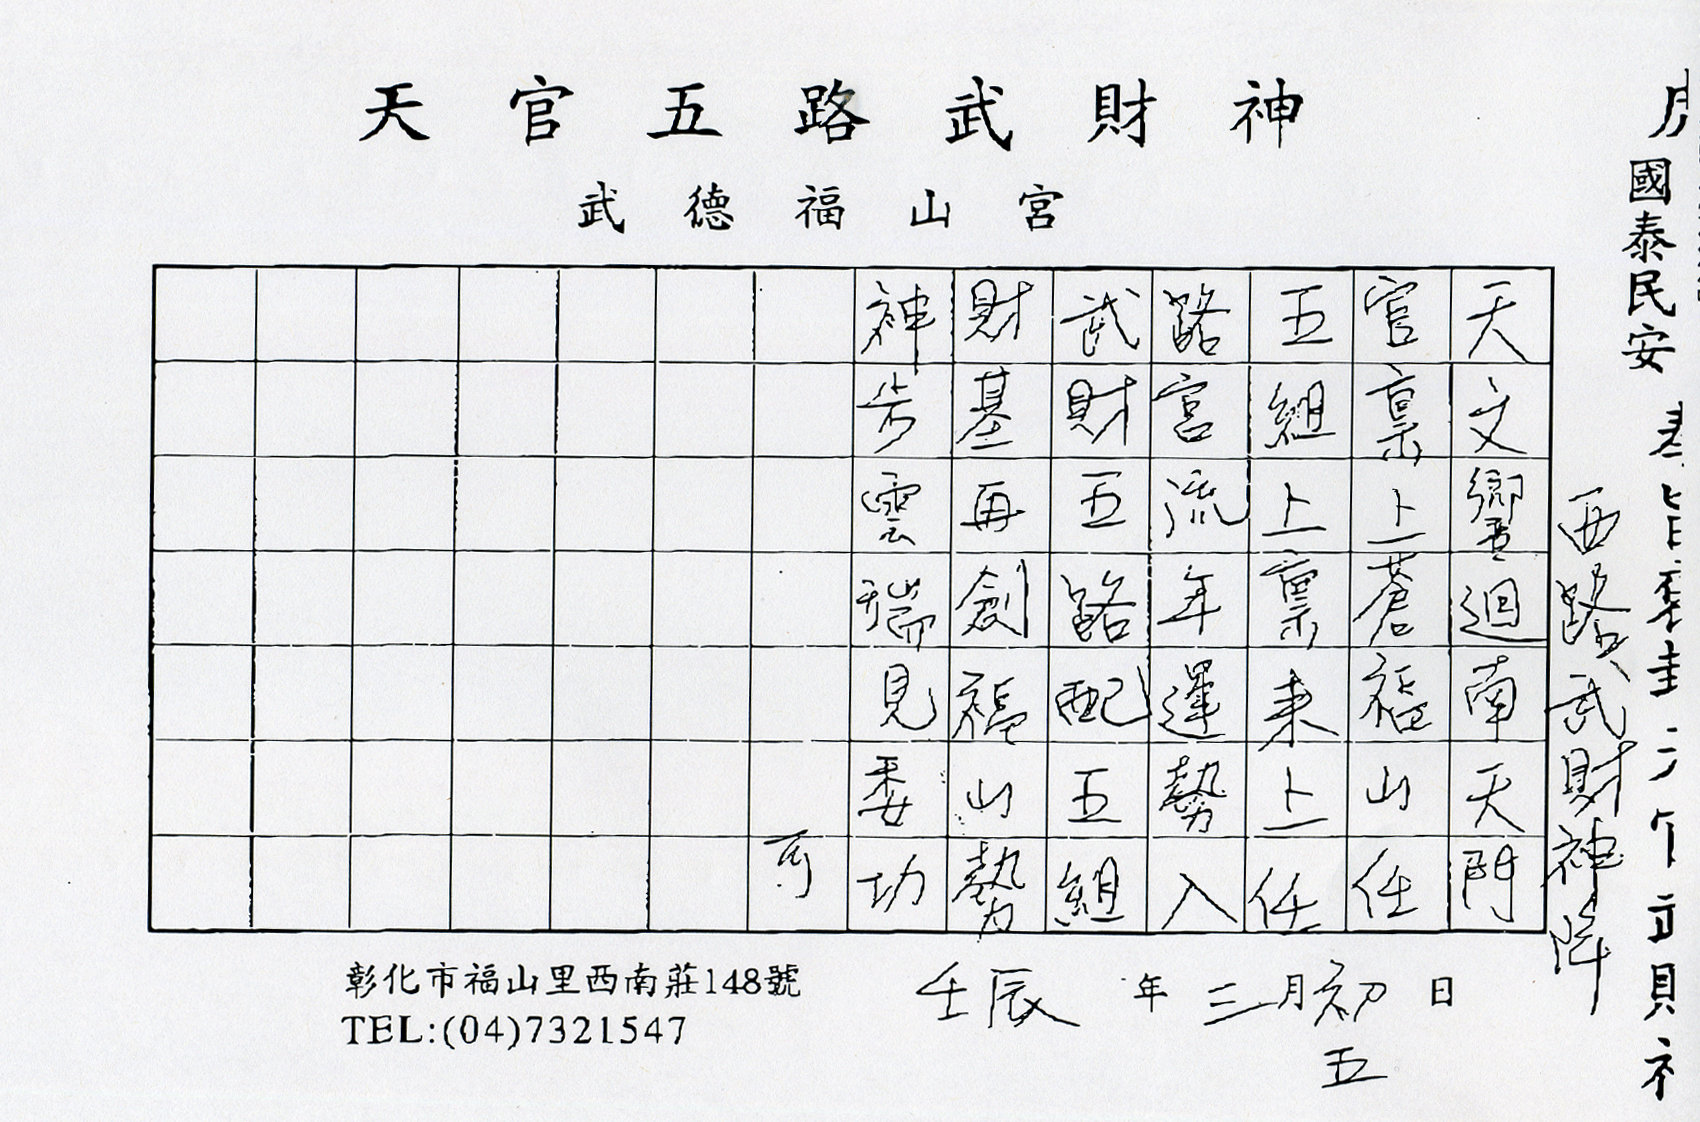 天官五路武財神
武德福山宮
國泰民安
西路武財神降
天文響迴南天門
官稟上蒼福山任
五組上稟來上任
路宮流年運勢入
武財五路配五組
財基再創福山勢
神步雲瑞見委功
可
壬辰年三月初五日
彰化市福山里西南莊148號
TEL:(04)7321547